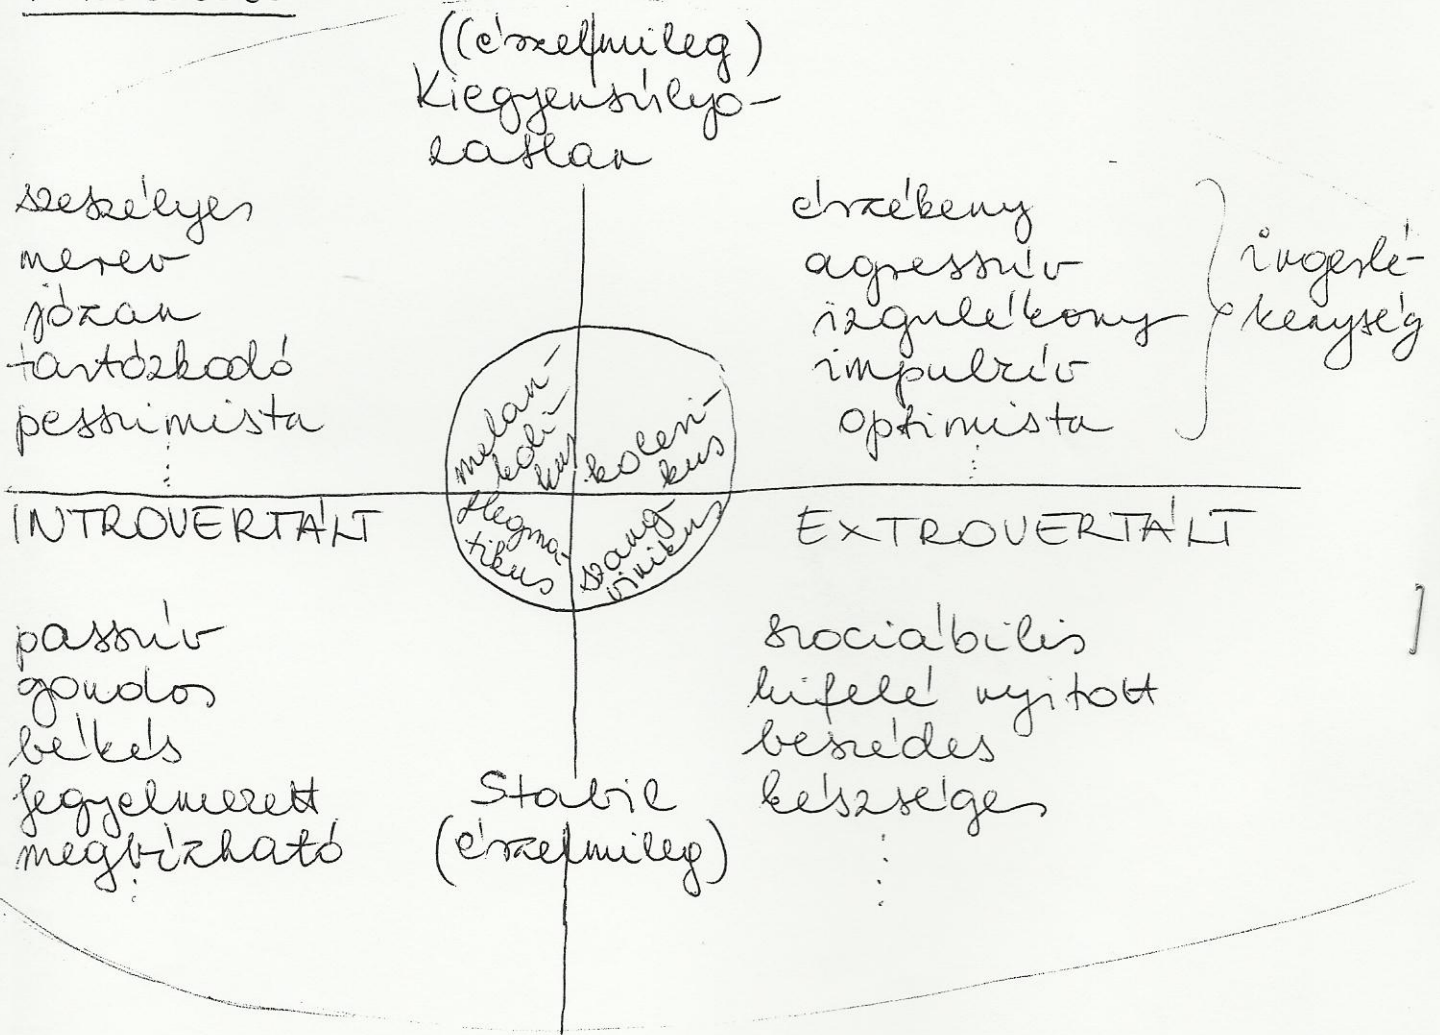 ((érzelmileg)
Kiegyensúlyo-
zatlan
szeszélyes
merev
józan
tartózkodó
pesszimista
érzékeny
agresszív
izgulékony
impulzív
optimista
ingerlé-
kenység
melan-
koli-
kus
koleri-
kus
flegma-
tikus
szang-
vinikus
INTROVERTÁLT
EXTROVERTÁLT
passzív
gondos
békés
fegyelmezett
megbízható
szociábilis
kifelé nyitott
beszédes
készséges
Stabil
(érzelmileg)